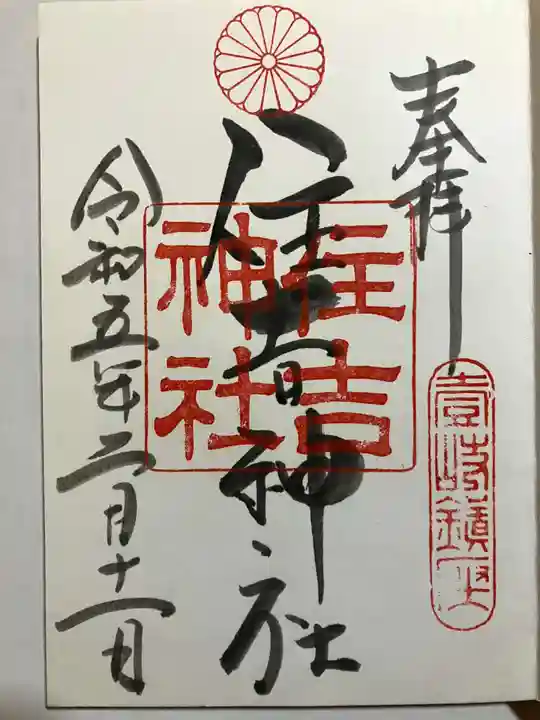 奉拝
壹岐鎮
住吉神社
住吉
神社
令和五年二月十一日